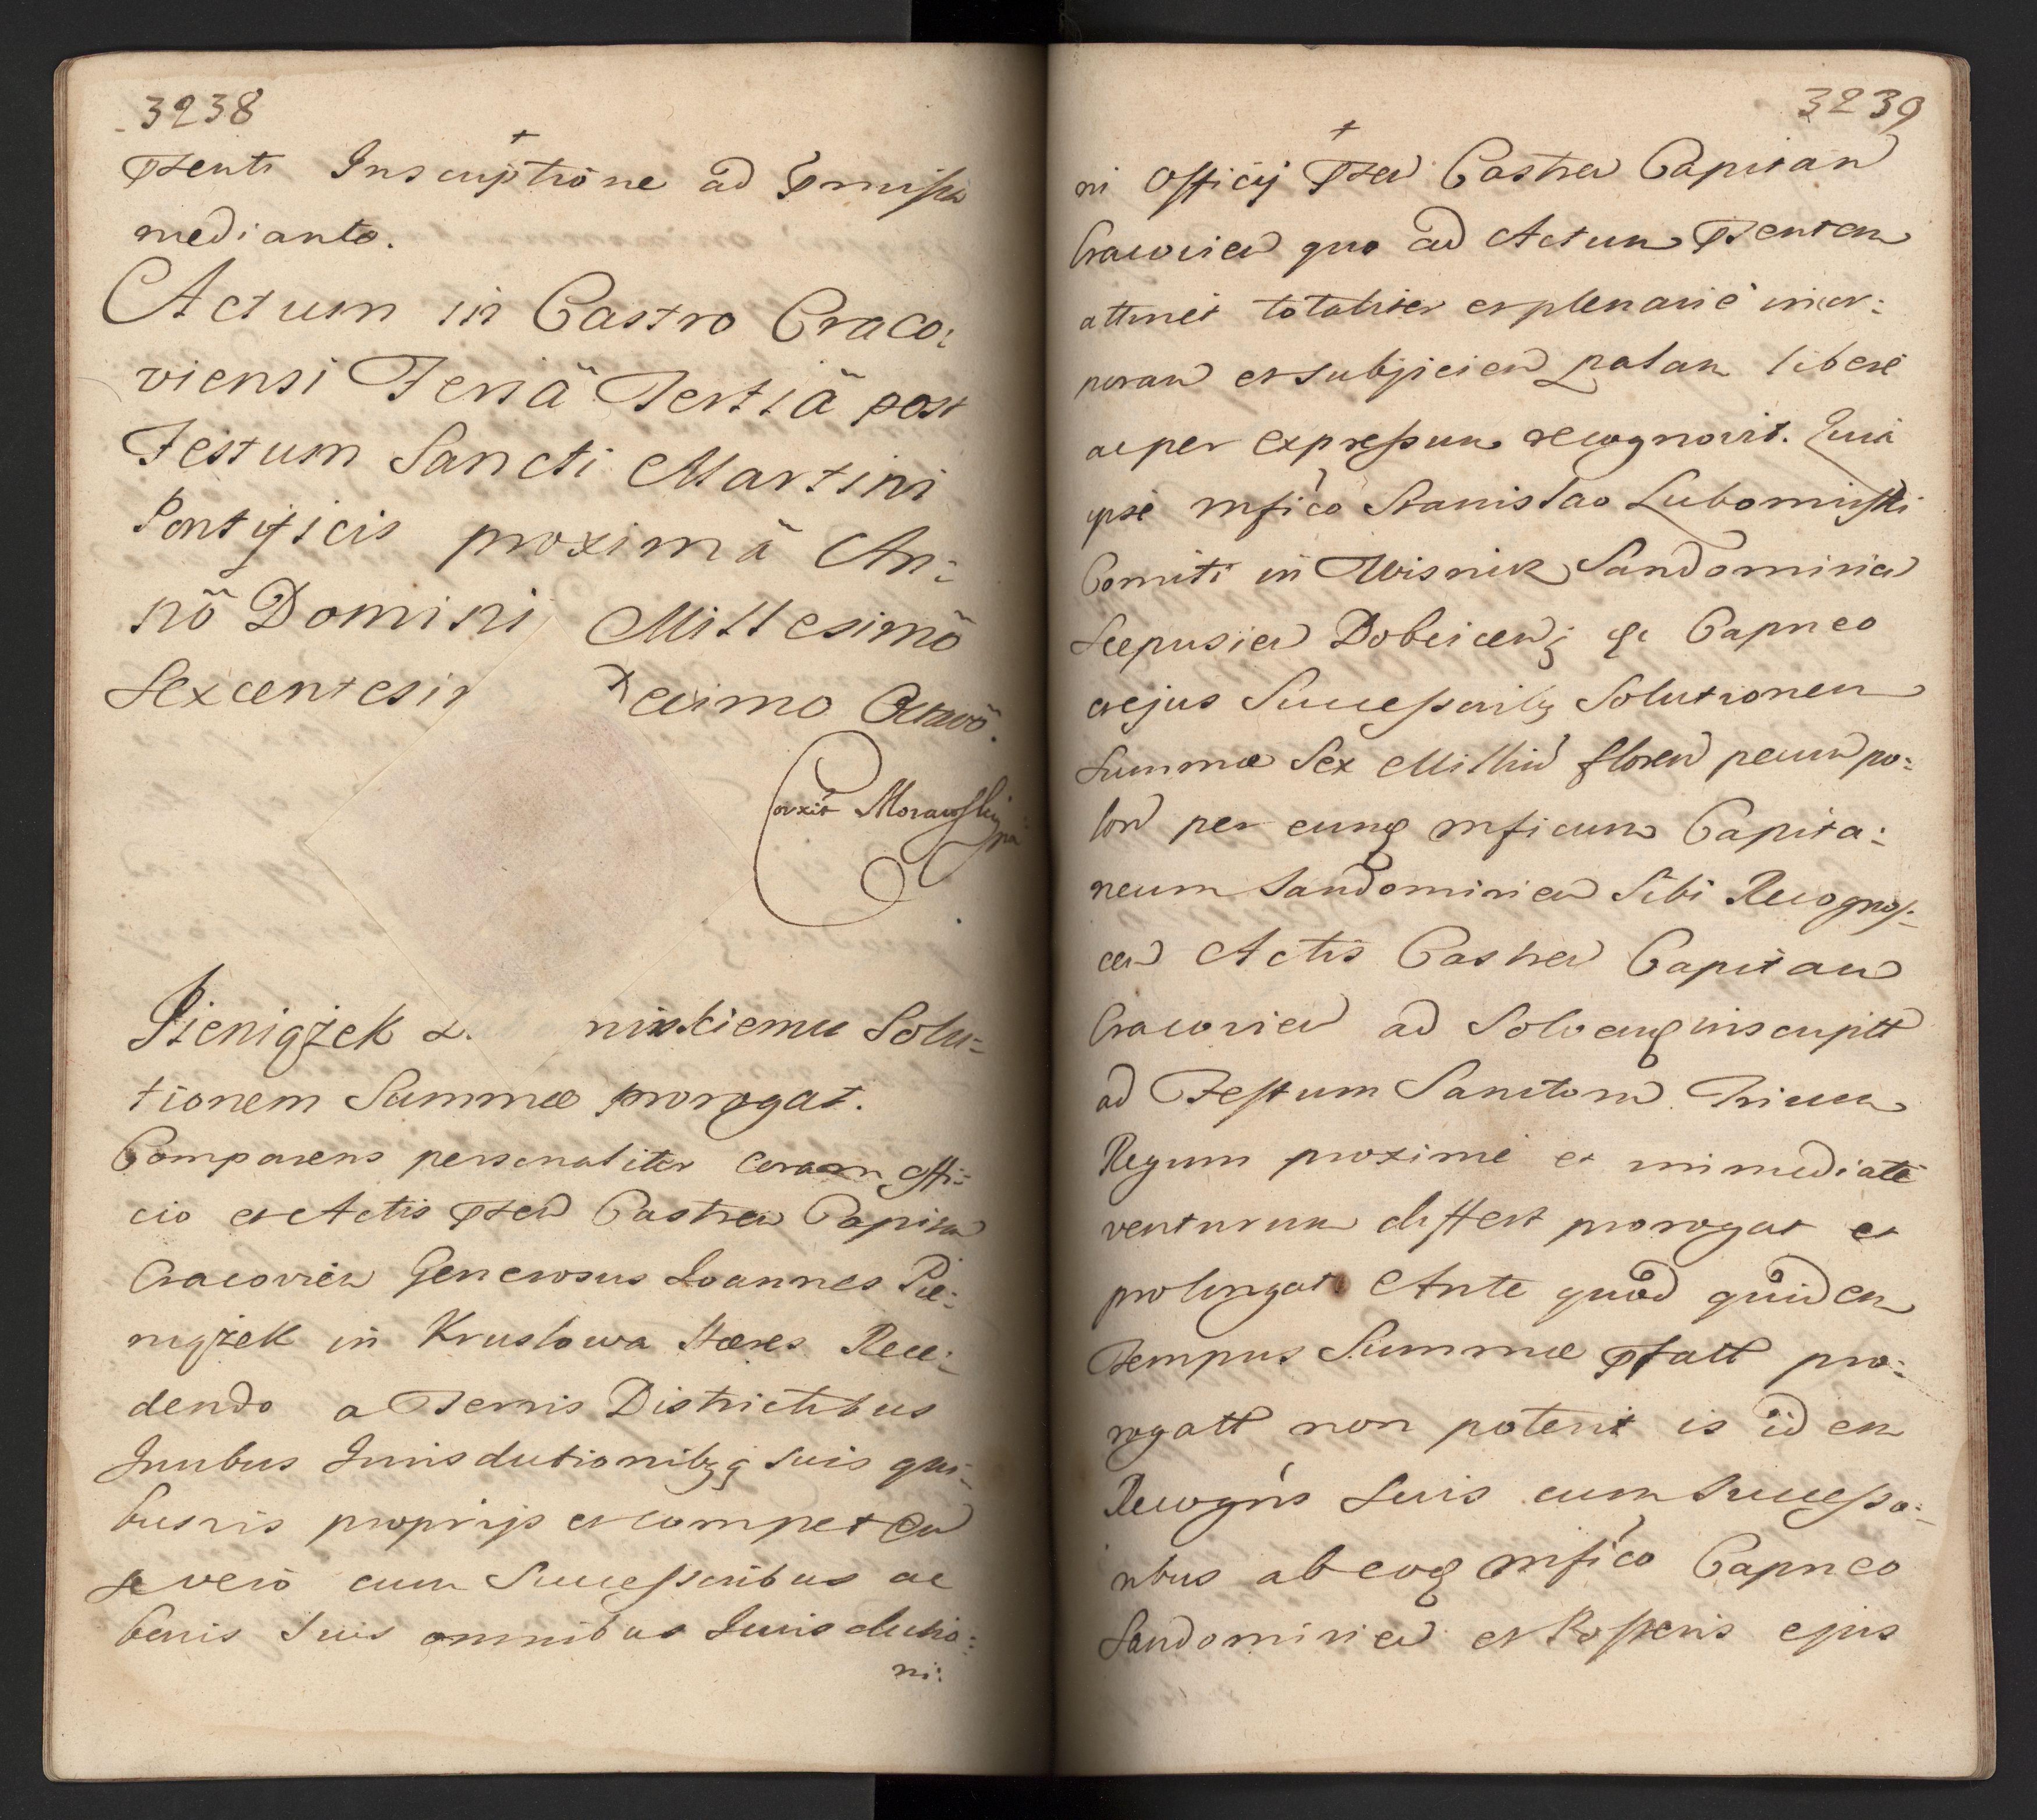 3238
pſenti Inscriptione ad pmiſsa
mediante.
Actum in Castro Craco:
viensi Feriâ Tertiâ post
Festum Sancti Martini
Pontificis proximâ An:
nô Domini Millesimô
Sexcentesi Decimo Octavô.
Corxit Morawski
Pieniążek L. mirskiemu Solu:
tionem Summæ prorogat.
Comparens personaliter coram Offi:
cio et Actis pſen Castren Capitan
Cracovien Generosus Joannes Pie:
niążek in Kruslowa Hæres Rece:
dendo a Terris Districtibus
Juribus Jurisdictionibq suis qui:
busvis proprijs et competen
se vero cum Succeſsoribus ac
bonis suis omnibus Jurisdictio:
ni:
3239
ni Officij pſen Castren Capitan
Cracovien quo ad Actum pſentem
attinet totaliter et plenarié incor:
poran et subjicien palam liberé
ac per expreſsum recognovit. Quia
ipse mfico Stanislao Lubomirſki
Comiti in Wisnicz Sandomirien
Scepusien Dobcicen &c Capneo
et ejus Succeſsoribq Solutionem
Summæ Sex Milliu floren pecun po:
lon per eunq mficum Capita:
neum Sandomirien Sibi Recognos:
cen Actis Castren Capitan
Cracovien ad Solvenq inscriptt
ad Feſtum Sanctorn Trium
Regum proximé et immediaté
venturum differt prorogat et
prolongat Ante quod quidem
Tempus Summæ pſatt pro:
rogatt non poterit is idem
Recogns Suis cum Succeſso:
ribus ab eoq mfico Capneo
Sandomirien et Poſteris ejus